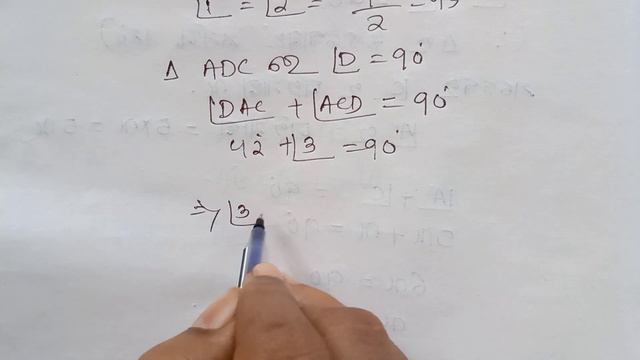 ∠1 = ∠2 =
2
Δ ADC ରେ ∠D = 90°
∠DAC + ∠ACD = 90°
42° + ∠3 = 90°
⇒ ∠3